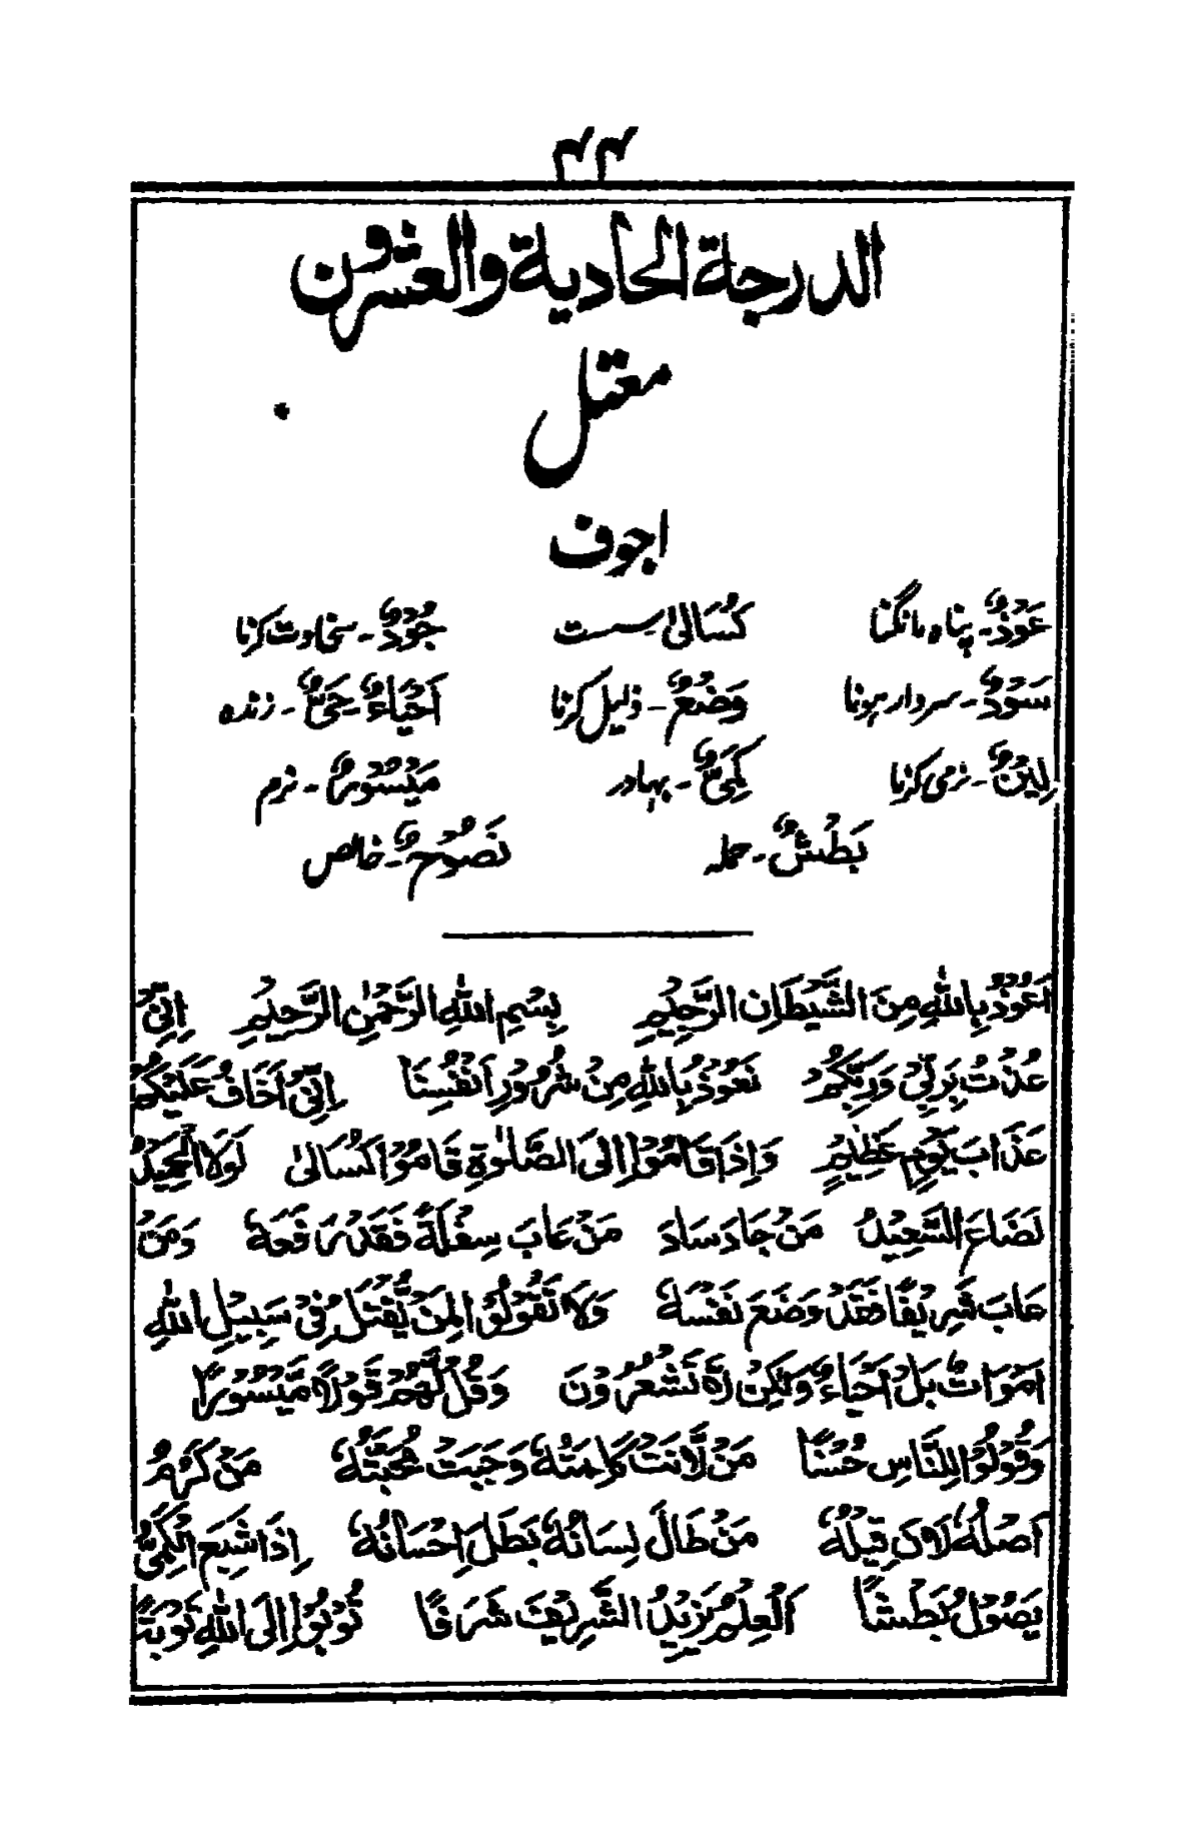 ۴۴
الدرجة الحادية والعشرون
معتل
اجوف
عَوْذٌ۔ پناہ مانگنا کُسَالیٰ سست جُوْدٌ۔ سخاوت کرنا
سَوْدٌ۔ سردار ہونا وَضْعٌ۔ ذلیل کرنا اَحْیَاءٌ۔ حَیٌّ۔ زندہ
لِیْنٌ۔ نرمی کرنا کَمِیٌّ۔ بہادر مَیْسُوْرٌ۔ نرم
بَطْشٌ۔ حملہ نَصُوْحٌ۔ خالص
اَعُوْذُ بِاللّٰهِ مِنَ الشَّیْطَانِ الرَّجِیْمِ بِسْمِ اللّٰهِ الرَّحْمٰنِ الرَّحِیْمِ اِنِّیْ
عُذْتُ بِرَبِّیْ وَرَبِّکُمْ نَعُوْذُ بِاللّٰهِ مِنْ شُرُوْرِ اَنْفُسِنَا اِنِّیْ اَخَافُ عَلَیْکُمْ
عَذَابَ یَوْمٍ عَظِیْمٍ وَاِذَا قَامُوْا اِلَی الصَّلٰوةِ قَامُوْا کُسَالیٰ لَوْلَا الْحَمِیْدُ
لَضَاعَ السَّعِیْدُ مَنْ جَادَ سَادَ مَنْ عَابَ سِفْلَةً فَقَدْ رَفَعَهٗ وَمَنْ
عَابَ شَرِیْفًا فَقَدْ وَضَعَ نَفْسَهٗ وَلَا تَقُوْلُوْا لِمَنْ یُّقْتَلُ فِیْ سَبِیْلِ اللّٰهِ
اَمْوَاتٌ بَلْ اَحْیَاءٌ وَّلٰکِنْ لَّا تَشْعُرُوْنَ وَقُلْ لَّهُمْ قَوْلًا مَّیْسُوْرًا
وَقُوْلُوْا لِلنَّاسِ حُسْنًا مَنْ لَّانَتْ کَلِمَتُهٗ وَجَبَتْ مُحَبَّتُهٗ مَنْ کَرُمَ
اَصْلُهٗ لَانَ قِیْلُهٗ مَنْ طَالَ لِسَانُهٗ بَطَلَ اِحْسَانُهٗ اِذَا شَبِعَ الْکَمِیُّ
یَصُوْلُ بَطْشًا اَلْعِلْمُ یَزِیْدُ الشَّرِیْفَ شَرَفًا تُوْبُوْا اِلَی اللّٰهِ تَوْبَةً